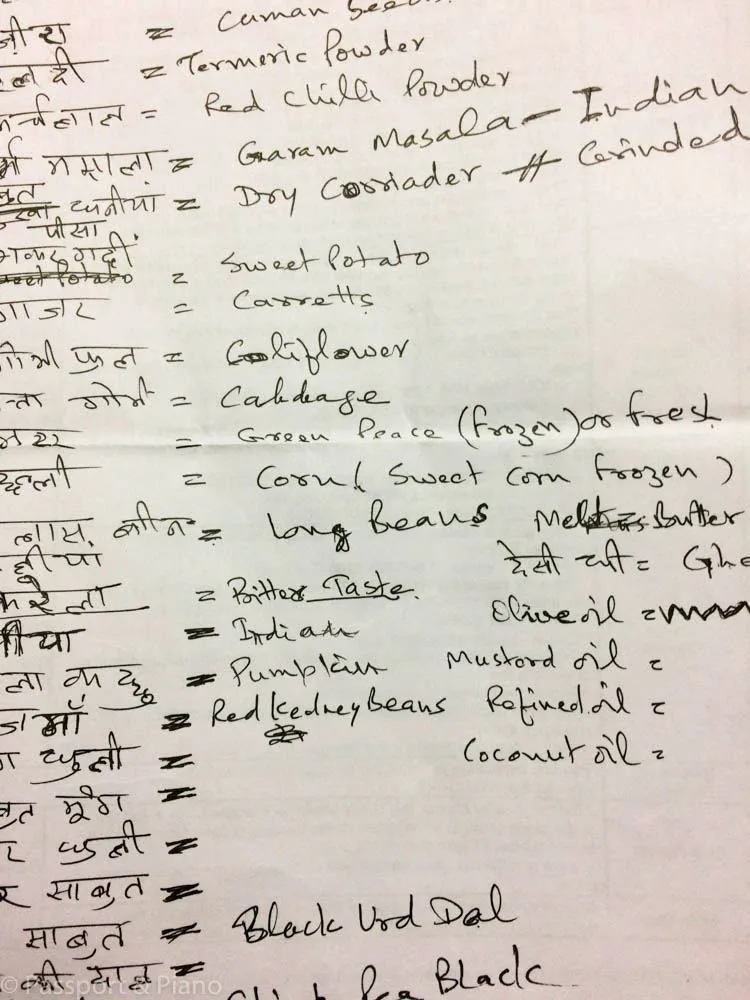 जीरा = Cuman Seeds
हल्दी = Termeric Powder
र्चलाल = Red Chilli Powder
र्म मसाला = Garam Masala - Indian
धनीया = Dry Corriader # Grinded
पीसा
= Sweet Potato
गाजर = Carretts
गोभी फुल = Goliflower
त्ता गोभी = Cabdage
मटर = Green Peace (frozen) or fresh
छल्ली = Corn ( Sweet corn frozen )
= Long Beans Butter
देसी घी = Ghe
करेला = Bitter Taste
Olive oil =
= Indian
Mustord oil =
= Pumpkin
जमाँ = Red KedneyBeans Refined oil =
धुली = Coconut oil =
मूंग =
र धुली =
र साबुत =
साबुत = Black Urd Dal
=
Black
© Passport & Piano